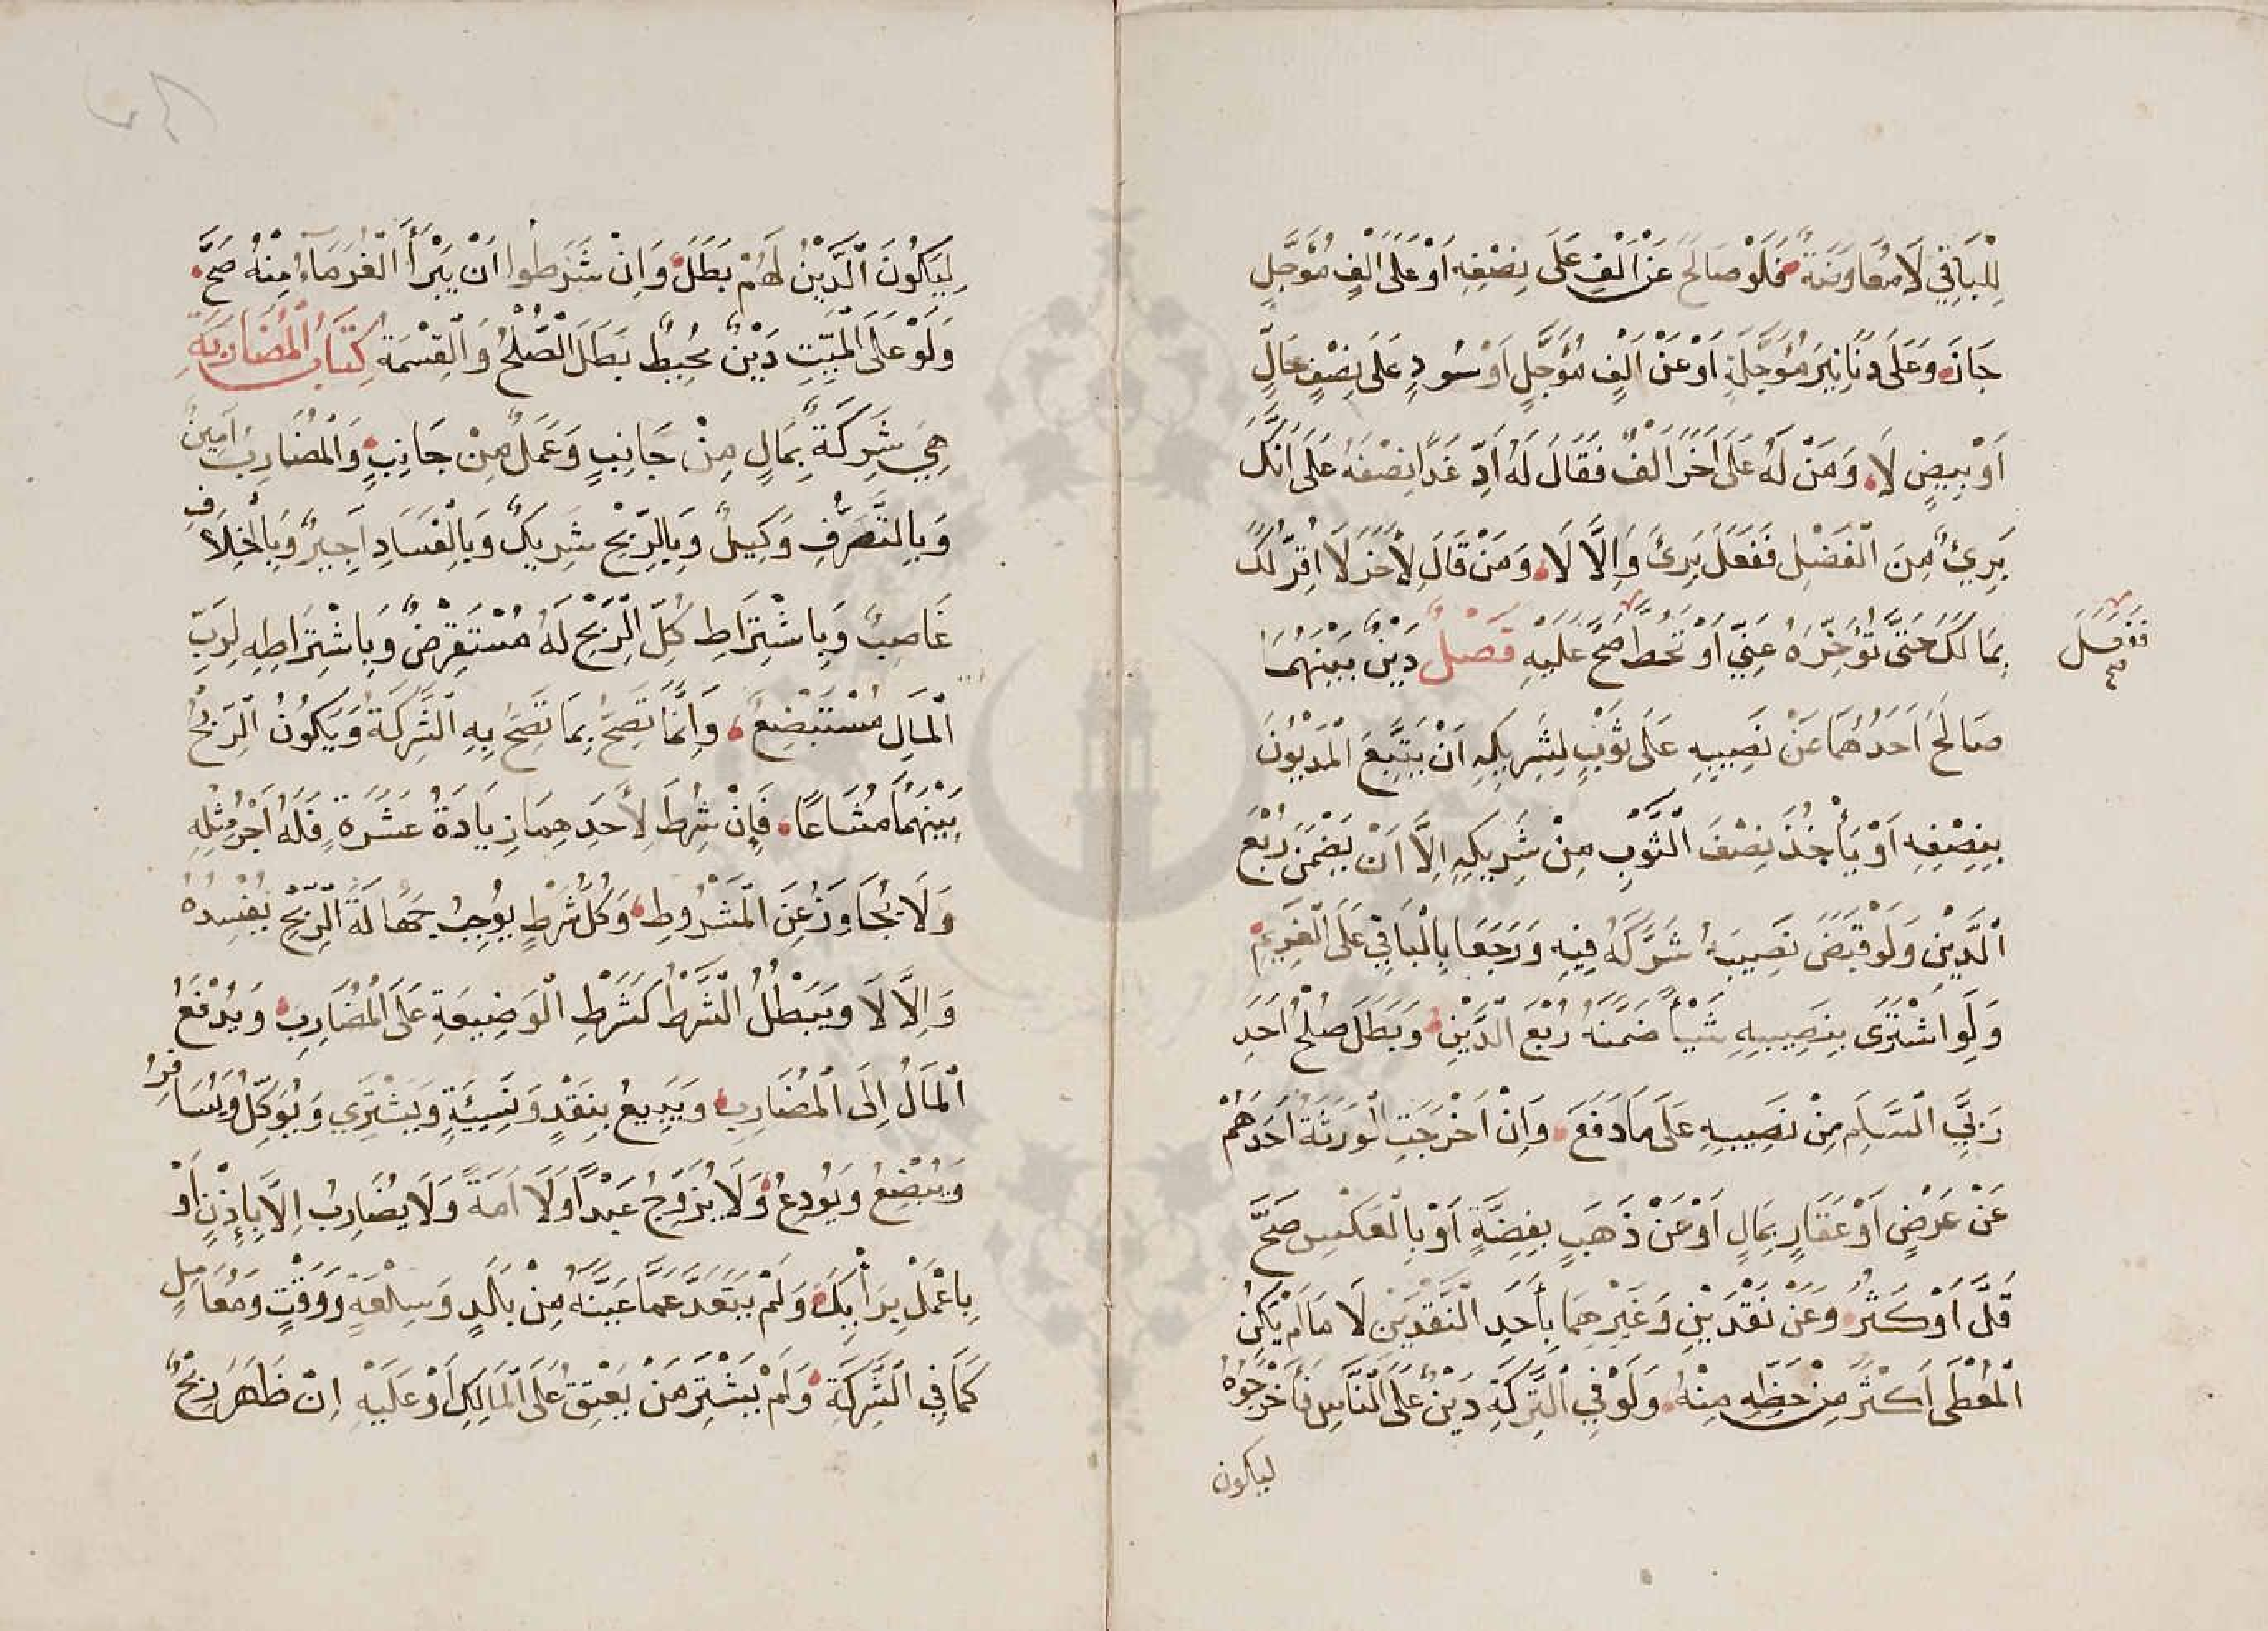 لِلْبَاقِي لَا مُعَاوَضَةٌ فَلَوْ صَالَحَ عَنْ اَلْفٍ عَلَى نِصْفِهِ اَوْ عَلَى اَلْفٍ مُؤَجَّلٍ
جَازَ وَعَلَى دَنَانِيرَ مُؤَجَّلَةٍ اَوْ عَنْ اَلْفٍ مُؤَجَّلٍ اَوْ سُودٍ عَلَى نِصْفٍ حَالٍّ
اَوْ بِيضٍ لَا وَمَنْ لَهُ عَلَى اٰخَرَ اَلْفٌ فَقَالَ لَهُ اَدِّ غَدًا نِصْفَهُ عَلَى اَنَّكَ
بَرِيْءٌ مِنَ الْفَضْلِ فَفَعَلَ بَرِئَ وَاِلَّا لَا وَمَنْ قَالَ لِأٰخَرَ لَا اُقِرُّ لَكَ
بِمَالَكَ حَتَّى تُؤَخِّرَهُ عَنِّي اَوْ تَحُطَّ صَحَّ عَلَيْهِ فَصْلٌ دَيْنٌ بَيْنَهُمَا
فَفَعَلَ صح
صَالَحَ اَحَدُهُمَا عَنْ نَصِيبِهِ عَلَى ثَوْبٍ لِشَرِيكِهِ اَنْ يَتَّبِعَ الْمَدْيُونَ
بِنِصْفِهِ اَوْ يَأْخُذَ نِصْفَ الثَّوْبِ مِنْ شَرِيكِهِ اِلَّا اَنْ يَضْمَنَ رُبْعَ
الدَّيْنِ وَلَوْ قَبَضَ نَصِيبَهُ شَرَّكَهُ فِيهِ وَرَجَعَا بِالْبَاقِي عَلَى الْغَرِيمِ
وَلَوِ اشْتَرَى بِنَصِيبِهِ شَيْأً ضَمَّنَهُ رُبْعَ الدَّيْنِ وَبَطَلَ صُلْحُ اَحَدِ
رَبَّيِ السَّلَمِ مِنْ نَصِيبِهِ عَلَى مَا دَفَعَ وَاِنْ اَخْرَجَتِ الْوَرَثَةُ اَحَدَهُمْ
عَنْ عَرَضٍ اَوْ عَقَارٍ بِمَالٍ اَوْ عَنْ ذَهَبٍ بِفِضَّةٍ اَوْ بِالْعَكْسِ صَحَّ
قَلَّ اَوْ كَثُرَ وَعَنْ نَقْدَيْنِ وَغَيْرِهِمَا بِأَحَدِ النَّقْدَيْنِ لَا مَا لَمْ يَكُنْ
الْمُعْطَى اَكْثَرَ مِنْ حَظِّهِ مِنْهُ وَلَوْ فِي التَّرِكَةِ دَيْنٌ عَلَى النَّاسِ فَأَخْرَجُوهُ
ليكون
لِيَكُونَ الدَّيْنُ لَهُمْ بَطَلَ وَاِنْ شَرَطُوا اَنْ يَبْرَأَ الْغُرَمَاءُ مِنْهُ صَحَّ
وَلَوْ عَلَى الْمَيِّتِ دَيْنٌ مُحِيطٌ بَطَلَ الصُّلْحُ وَالْقِسْمَةُ كِتَابُ الْمُضَارَبَةِ
هِيَ شَرِكَةٌ بِمَالٍ مِنْ جَانِبٍ وَعَمَلٌ مِنْ جَانِبٍ وَالْمُضَارِبُ اَمِينٌ
وَبِالتَّصَرُّفِ وَكِيلٌ وَبِالرِّبْحِ شَرِيكٌ وَبِالْفَسَادِ اَجِيرٌ وَبِالْخِلَافِ
غَاصِبٌ وَبِاشْتِرَاطِ كُلِّ الرِّبْحِ لَهُ مُسْتَقْرِضٌ وَبِاشْتِرَاطِهِ لِرَبِّ
الْمَالِ مُسْتَبْضِعٌ وَاِنَّمَا تَصِحُّ بِمَا تَصِحُّ بِهِ الشَّرِكَةُ وَيَكُونُ الرِّبْحُ
بَيْنَهُمَا مُشَاعًا فَإِنْ شُرِطَ لِأَحَدِهِمَا زِيَادَةُ عَشَرَةٍ فَلَهُ اَجْرُ مِثْلِهِ
وَلَا يُجَاوَزُ عَنِ الْمَشْرُوطِ وَكُلُّ شَرْطٍ يُوجِبُ جَهَالَةَ الرِّبْحِ يُفْسِدُهُ
وَاِلَّا لَا وَيَبْطُلُ الشَّرْطُ كَشَرْطِ الْوَضِيعَةِ عَلَى الْمُضَارِبِ وَيُدْفَعُ
الْمَالُ اِلَى الْمُضَارِبِ وَيَبِيعُ بِنَقْدٍ وَنَسِيئَةٍ وَيَشْتَرِي وَيُوَكِّلُ وَيُسَافِرُ
وَيُبْضِعُ وَيُودِعُ وَلَا يُزَوِّجُ عَبْدًا وَلَا اَمَةً وَلَا يُضَارِبُ اِلَّا بِإِذْنٍ اَوْ
بِاعْمَلْ بِرَأْيِكَ وَلَمْ يَتَعَدَّ عَمَّا عَيَّنَهُ مِنْ بَلَدٍ وَسِلْعَةٍ وَوَقْتٍ وَمُعَامِلٍ
كَمَا فِي الشَّرِكَةِ وَلَمْ يَشْتَرِ مَنْ يَعْتِقُ عَلَى الْمَالِكِ اَوْ عَلَيْهِ اِنْ ظَهَرَ رِبْحٌ